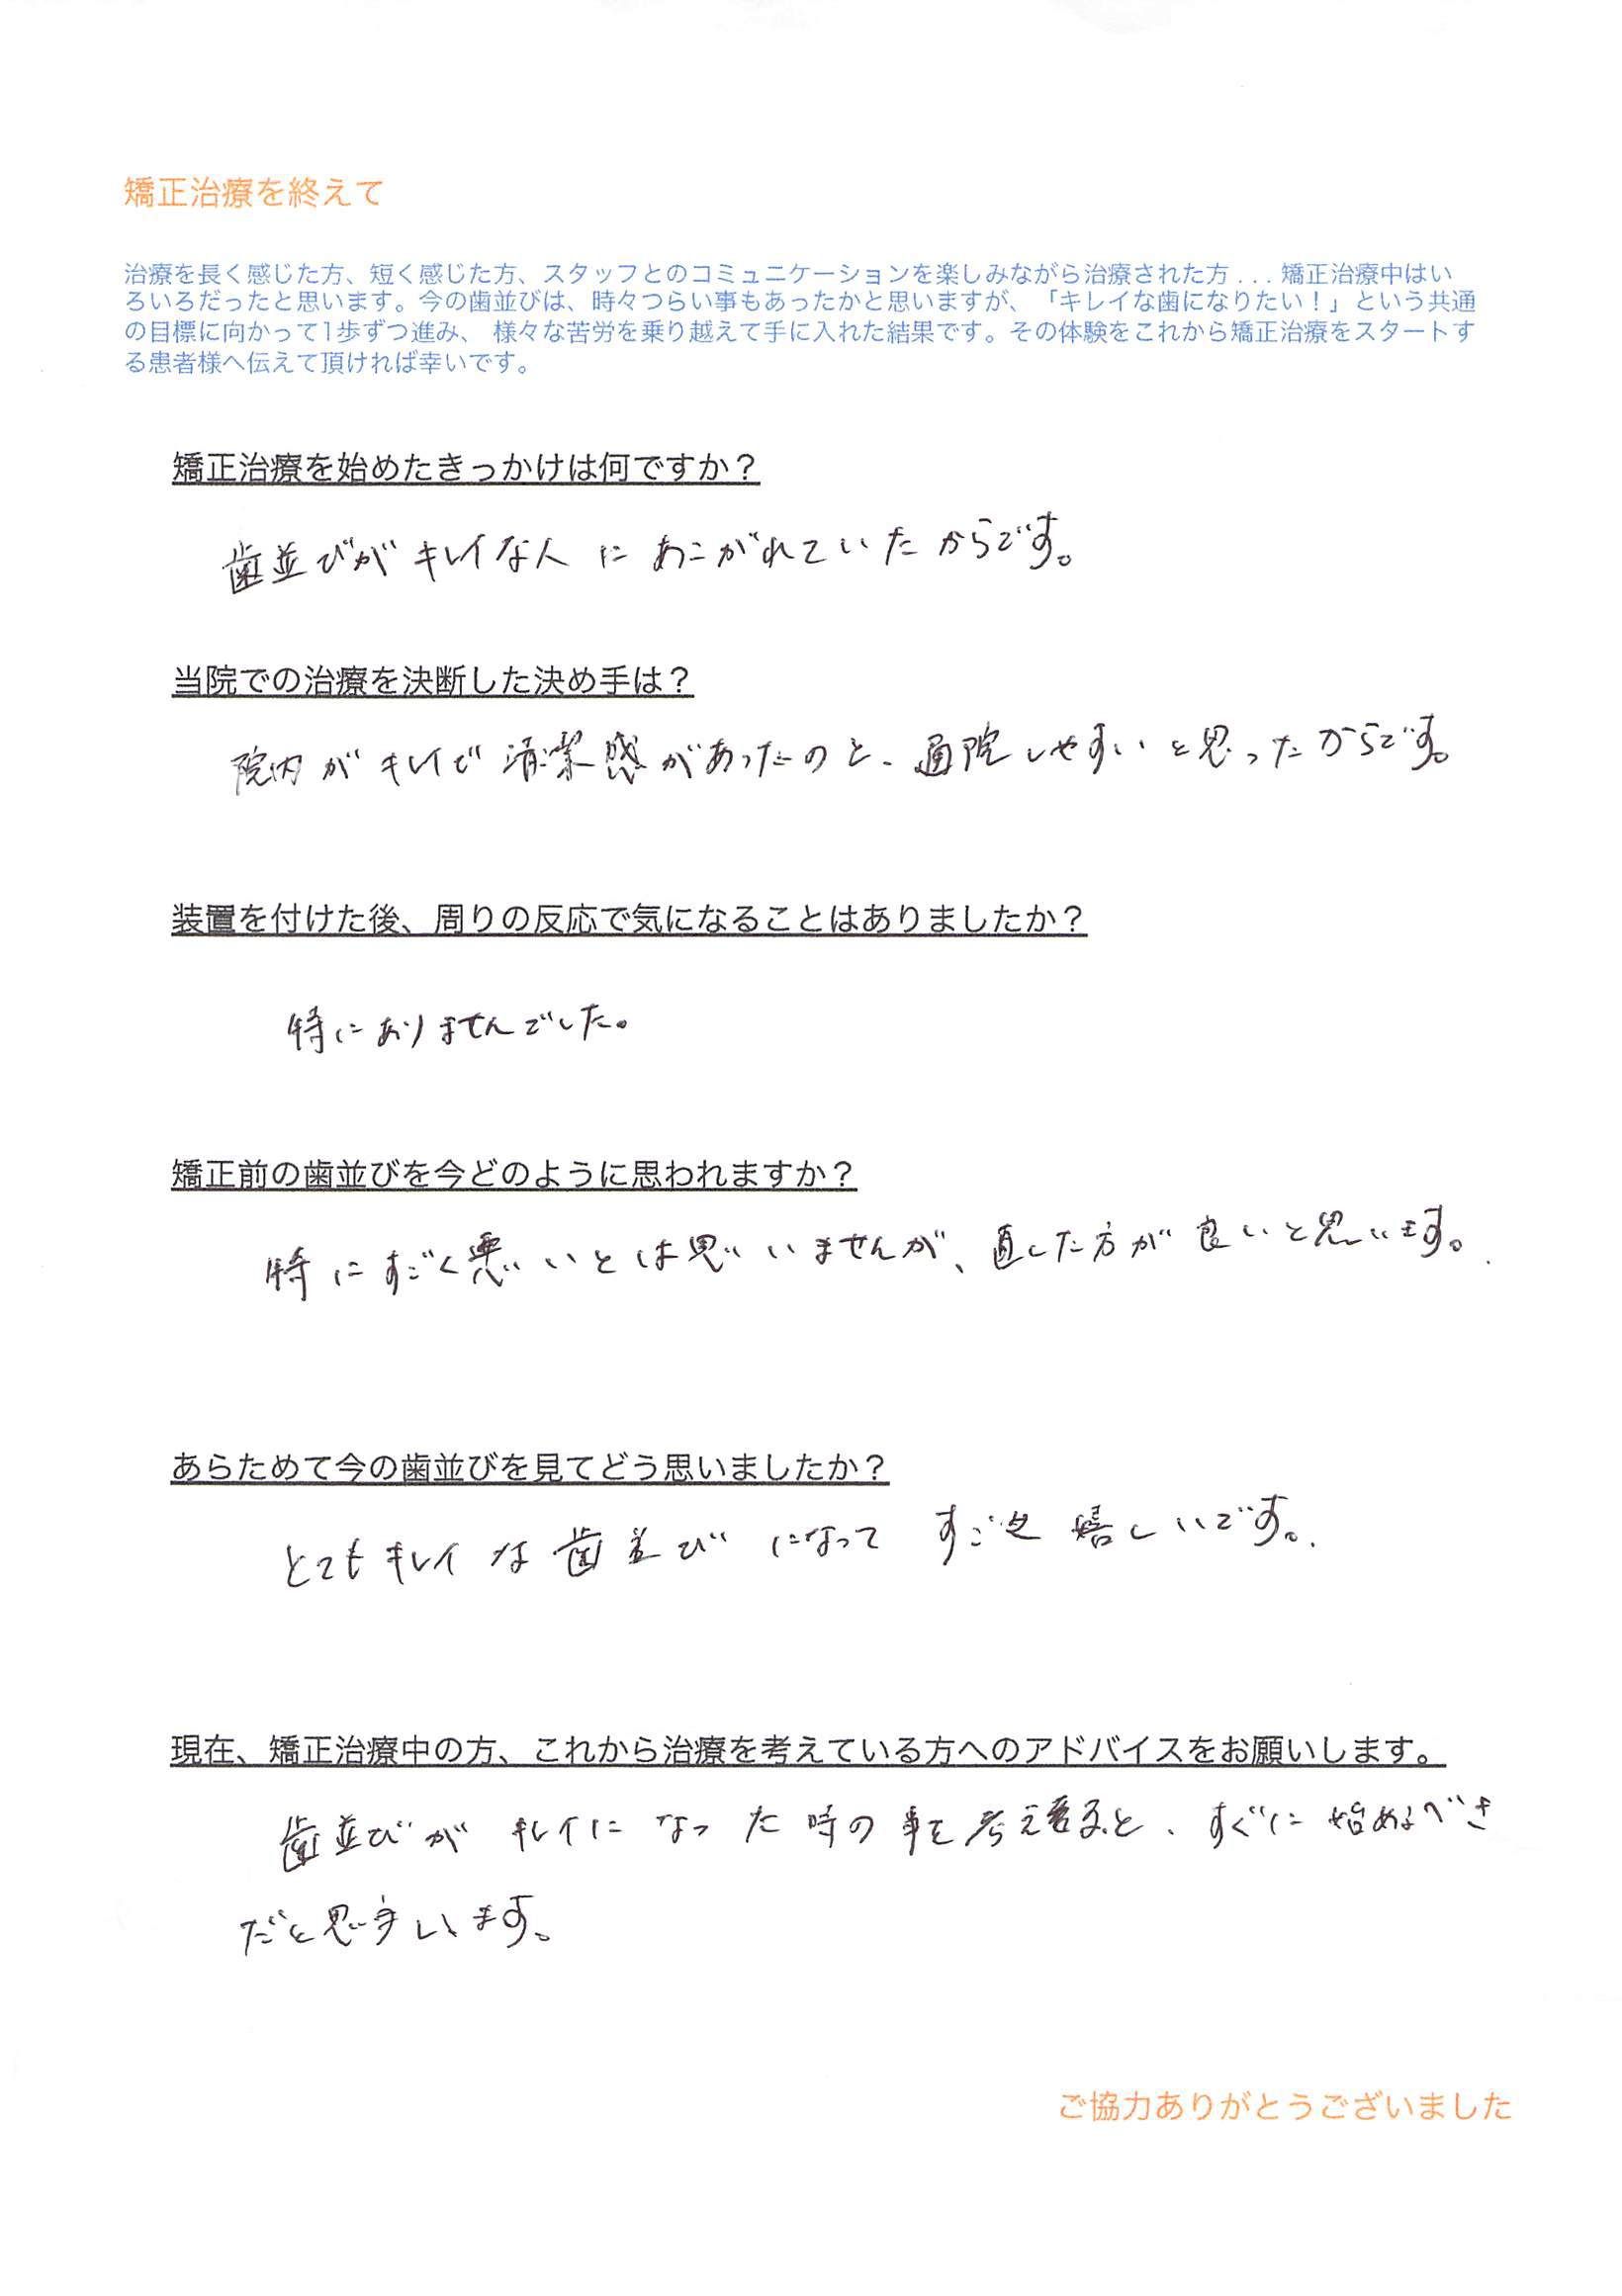 矯正治療を終えて
治療を長く感じた方、短く感じた方、スタッフとのコミュニケーションを楽しみながら治療された方 . . . 矯正治療中はい
ろいろだったと思います。今の歯並びは、時々つらい事もあったかと思いますが、「キレイな歯になりたい！」という共通
の目標に向かって1歩ずつ進み、 様々な苦労を乗り越えて手に入れた結果です。その体験をこれから矯正治療をスタートす
る患者様へ伝えて頂ければ幸いです。
矯正治療を始めたきっかけは何ですか？
歯並びがキレイな人にあこがれていたからです。
当院での治療を決断した決め手は？
院内がキレイで清潔感があったのと、通院しやすいと思ったからです。
装置を付けた後、周りの反応で気になることはありましたか？
特にありませんでした。
矯正前の歯並びを今どのように思われますか？
特にすごく悪いとは思いませんが、直した方が良いと思います。
あらためて今の歯並びを見てどう思いましたか？
とてもキレイな歯並びになってすごく嬉しいです。
現在、矯正治療中の方、これから治療を考えている方へのアドバイスをお願いします。
歯並びがキレイになった時の事を考えると、すぐに始めるべき
だと思います。
ご協力ありがとうございました